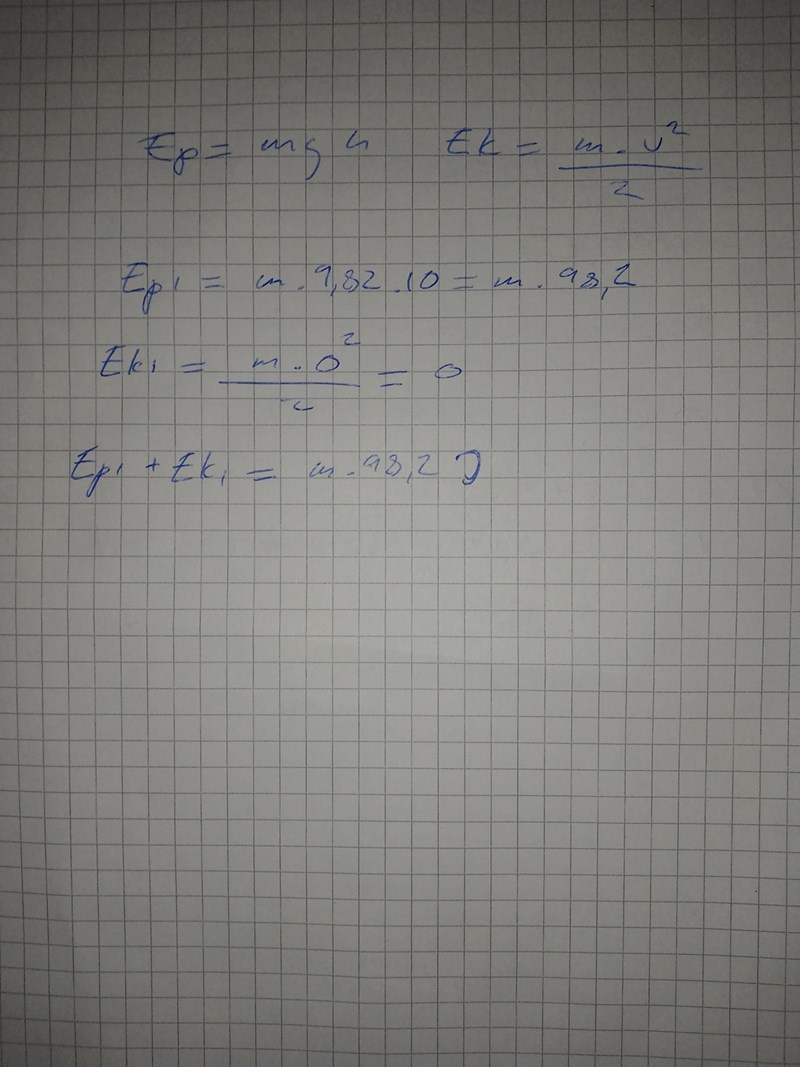 Ep = mgh Ek = m·v²/2
Ep1 = m·9,82·10 = m·98,2
Ek1 = m·0²/2 = 0
Ep1 + Ek1 = m·98,2 J